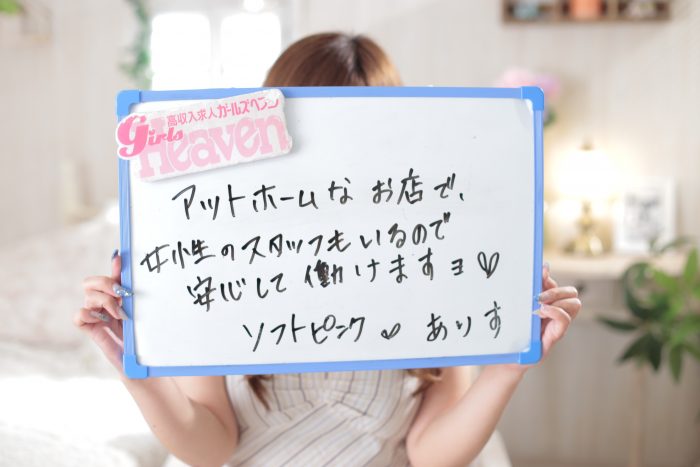 高収入求人ガールズヘブン
girls Heaven
アットホームな お店で、
女性のスタッフもいるので
安心して 働けますヨ♡
ソフトピンク ♡ ありす